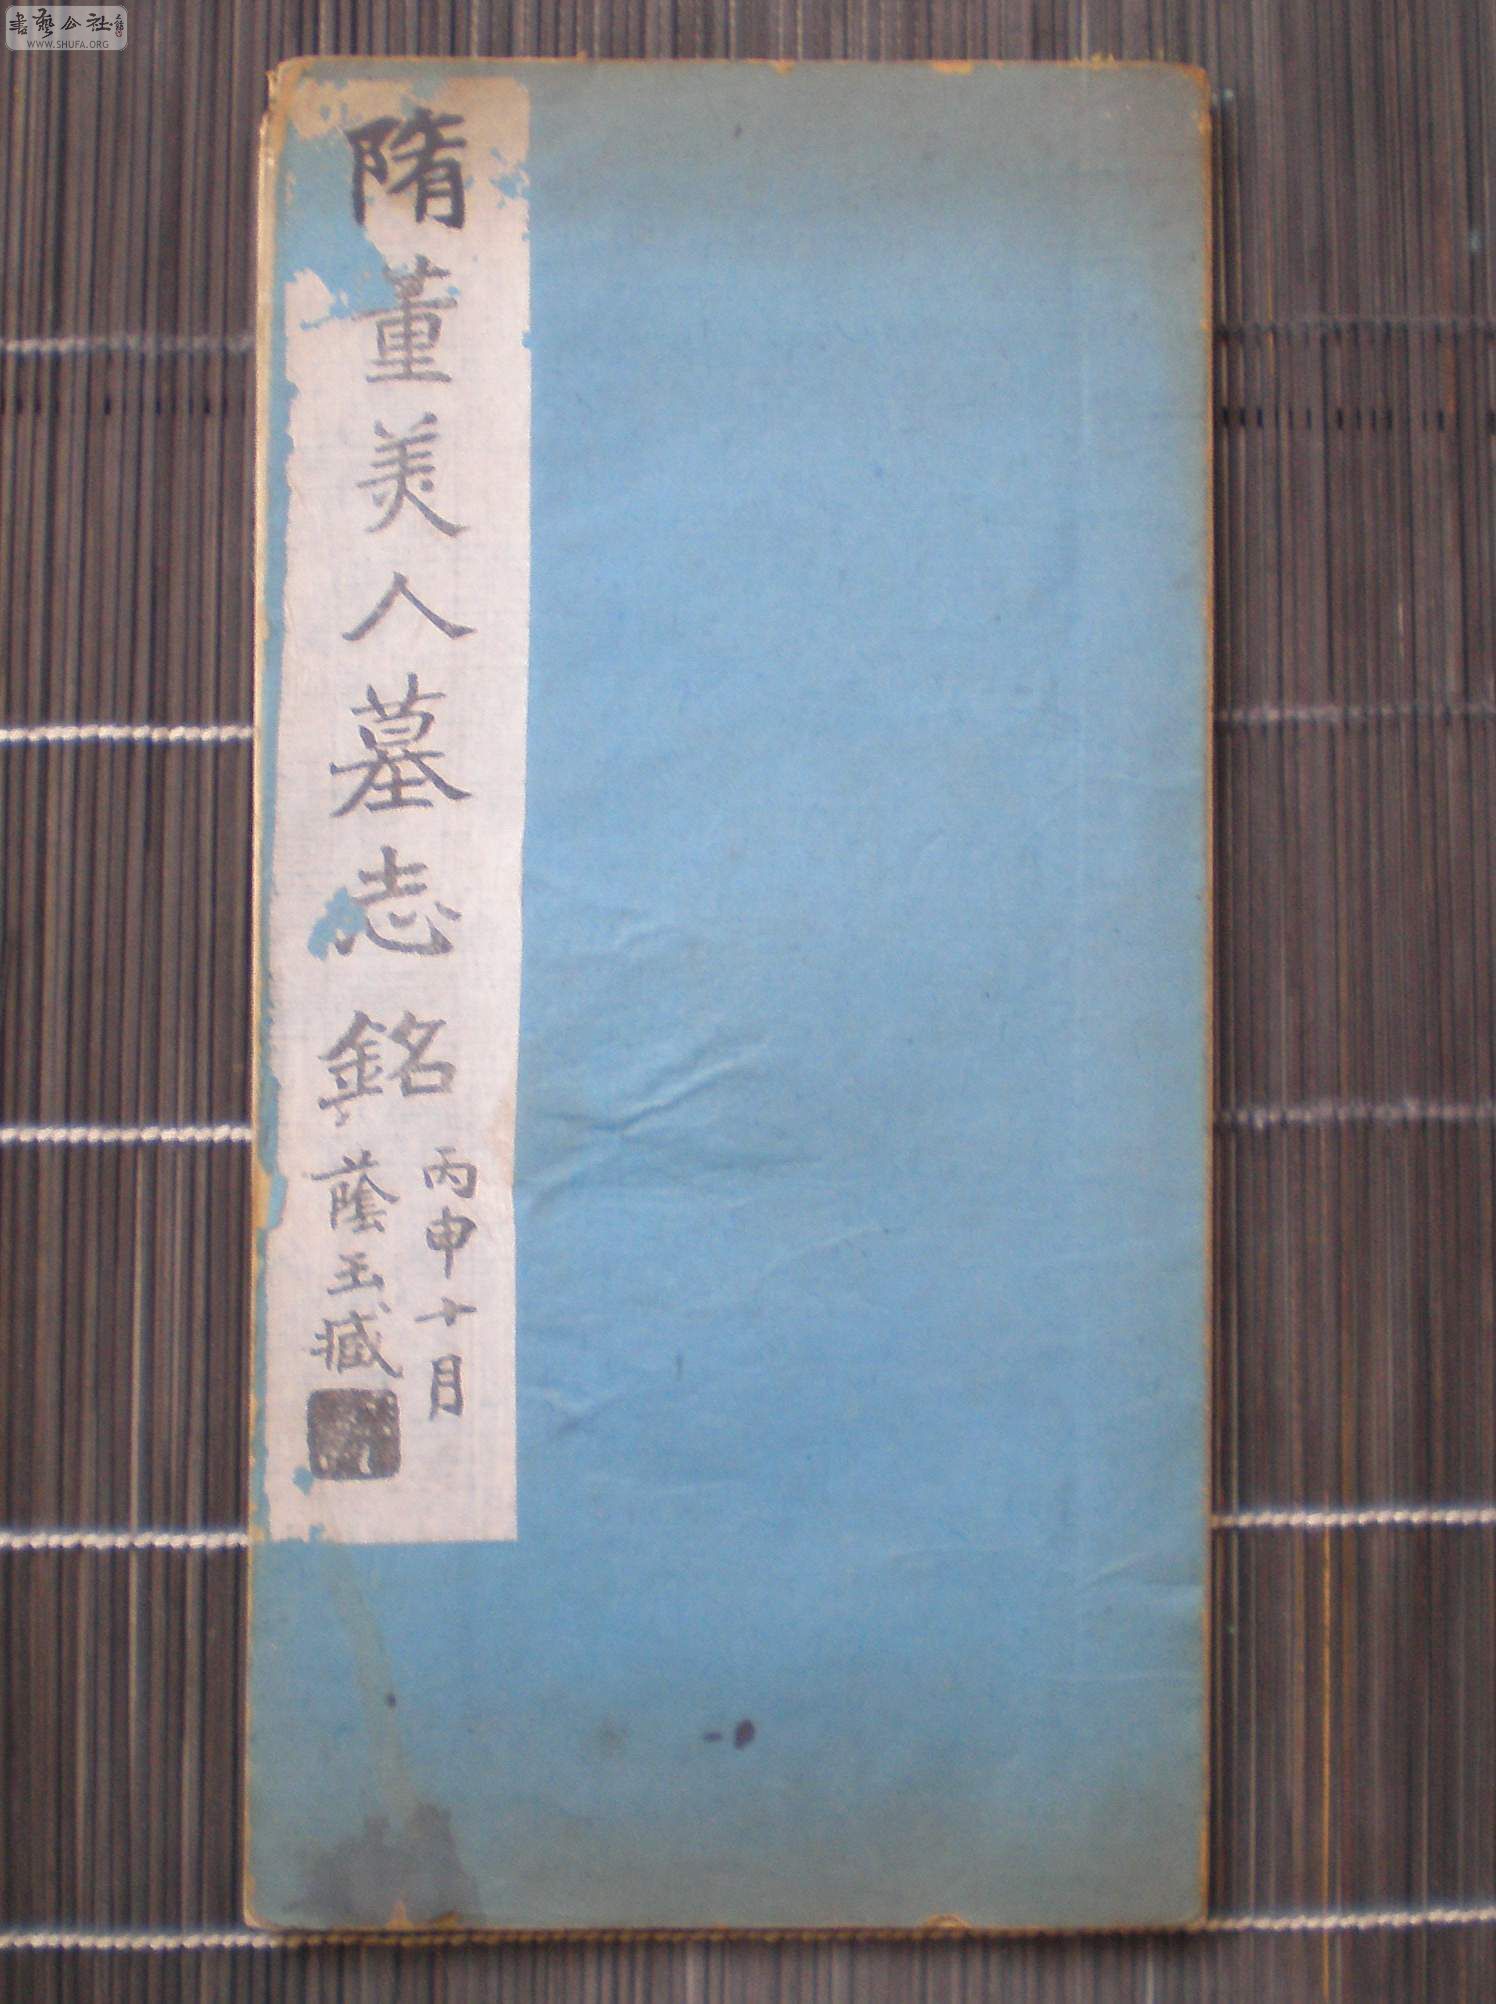 書藝公社
WWW.SHUFA.ORG
隋董美人墓志銘
丙申十月
蔭玉藏